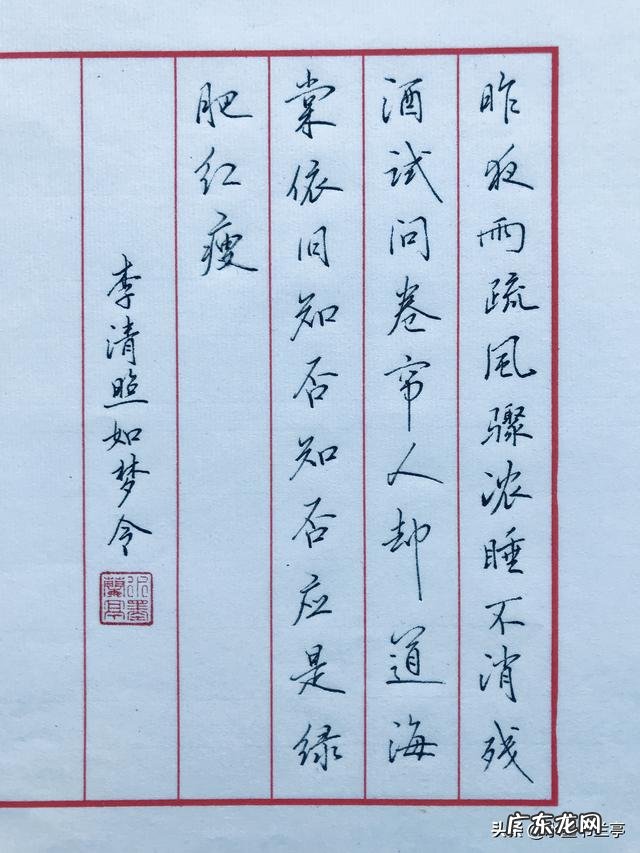 昨夜雨疏风骤浓睡不消残
酒试问卷帘人却道海
棠依旧知否知否应是绿
肥红瘦
李清照如梦令
广东龙网